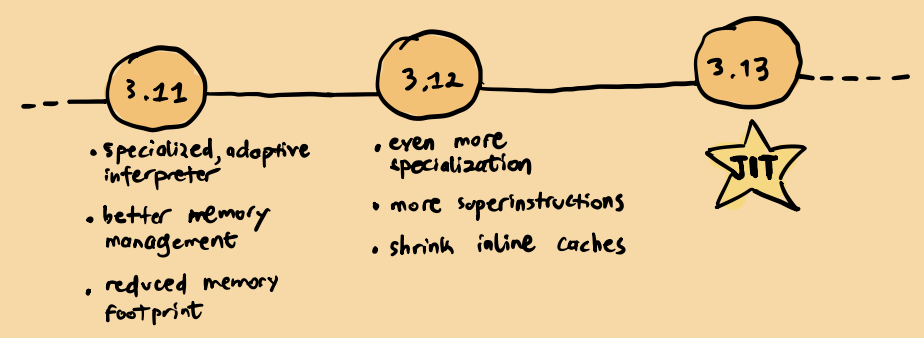 3.11
• specialized, adaptive
interpreter
• better memory
management
• reduced memory
footprint
3.12
• even more
specialization
• more superinstructions
• shrink inline caches
3.13
JIT